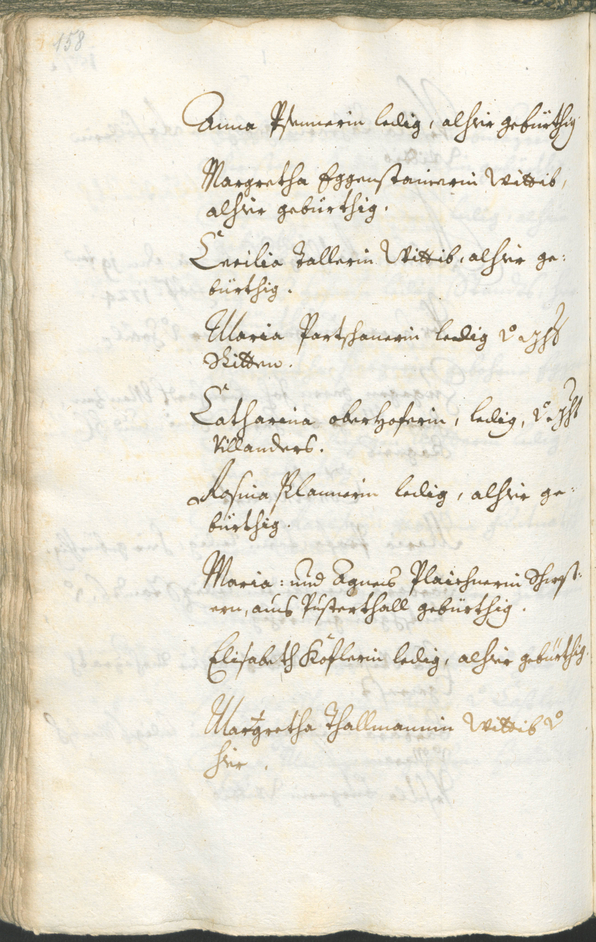 158
Anna Psennerin ledig, alhier gebürthig
Margretha Eggenstainerin Wittib,
alhier gebürthig.
Cecilia Tallerin Wittib, alhier ge:
bürthig.
Maria Partschanerin ledig
Ritten.
Catharina oberhoferin, ledig,
Villanders.
Rosina Planerin ledig, alhier ge:
bürthig.
Maria: und Agnes Plaichnerin Schwest:
ern, aus Pusterthall gebürthig.
Elisabeth Köflerin ledig, alhier gebürthig.
Margretha Thallmannin Wittib
hier.